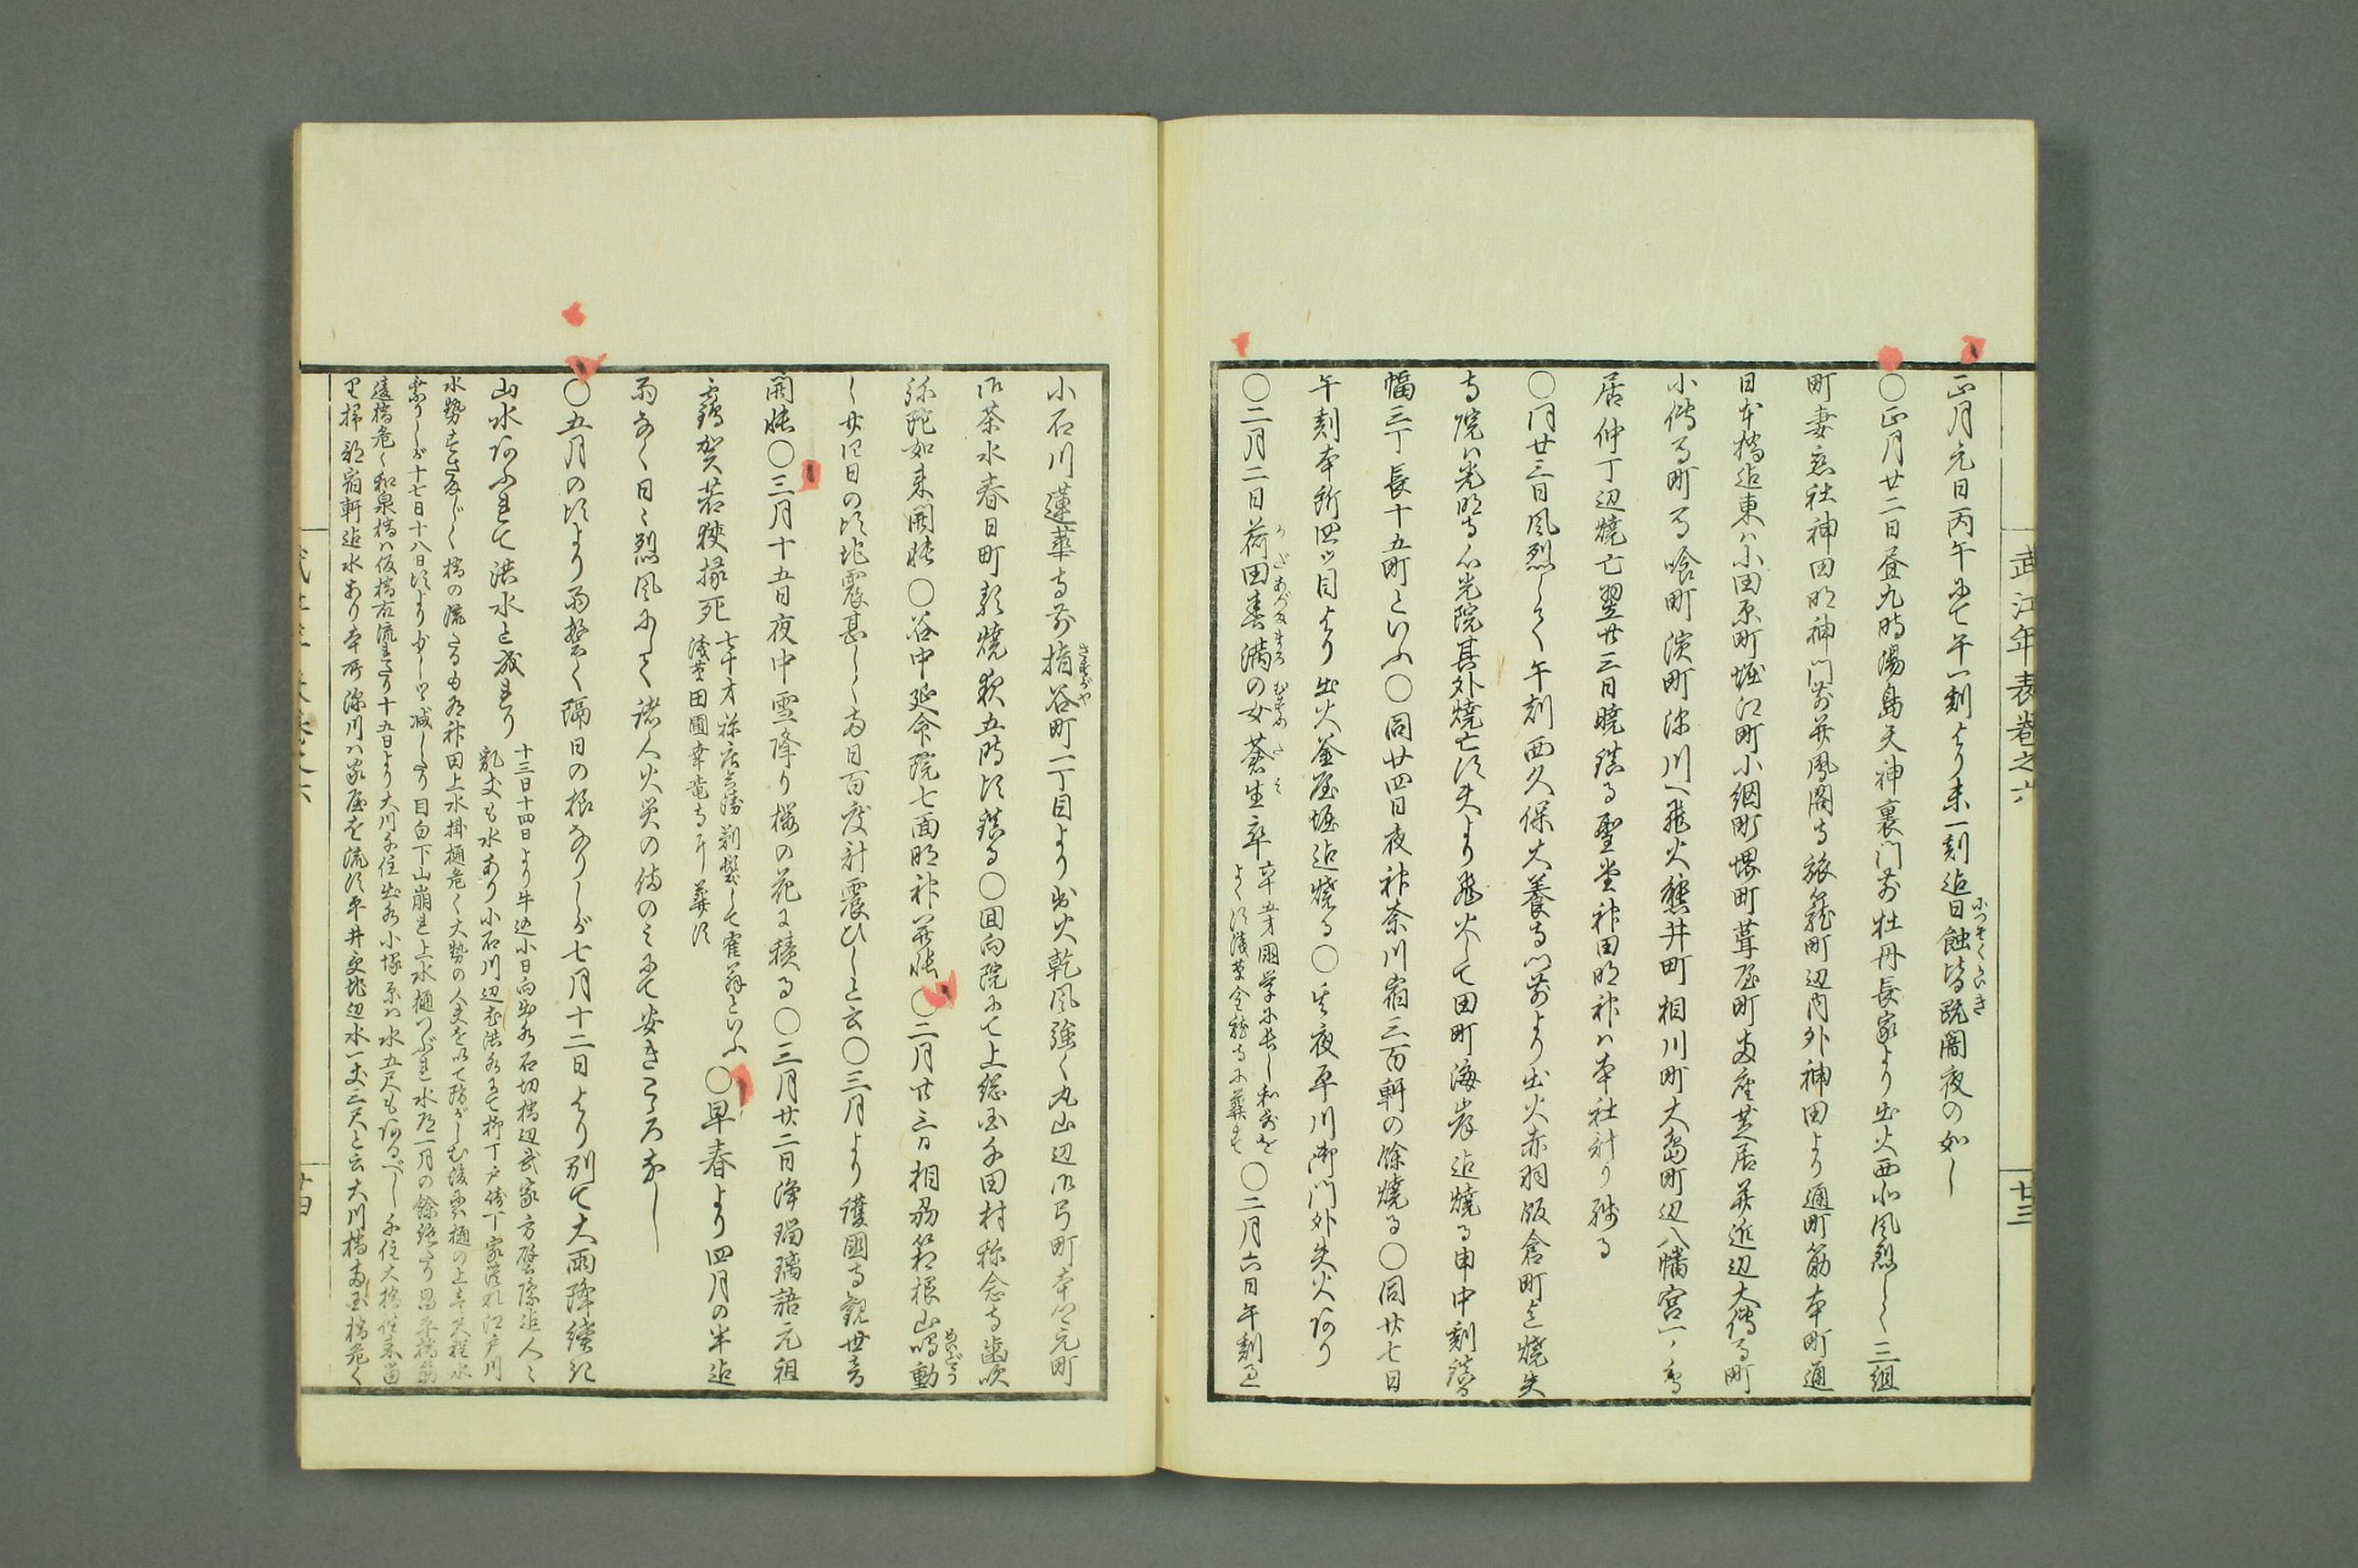 武江年表巻之六
廿三
正月元日丙午にて午一刻より未一刻迄日蝕皆既闇夜の如し
○正月廿二日昼九時湯島天神裏門前牡丹長家より出火西北風烈しく三組
町妻恋社神田明神門前並鳳閣寺旅籠町辺内外神田より通町筋本町通
日本橋迄東ハ小田原町堀江町小網町堺町葺屋町両座芝居並近辺大伝馬町
小伝馬町馬喰町濱町深川へ飛火熊井町相川町大島町辺八幡宮一ノ鳥
居仲丁辺焼亡翌廿三日暁鎮る聖堂神田明神ハ本社計り残る
○同廿三日風烈しく午刻西久保大養寺門前より出火赤羽飯倉町辺焼失
寺院ハ光明寺心光院其外焼亡す夫より飛火して田町海岸迄焼る申中刻鎮る
幅三丁長十五町といふ○同廿四日夜神奈川宿三百軒の餘焼る○同廿七日
午刻本所四ツ目より出火釜屋堀迄焼る○其夜平川御門外失火あり
○二月二日荷田春満の女蒼生卒
国学に長し和哥を
よくす浅草金龍寺に葬す
○二月六日午刻過
小石川蓮華寺前指谷町二丁目より出火乾風強く丸山辺御弓町本郷元町
御茶水春日町類焼夜五時頃鎮る○回向院にて上総国千田村称念寺歯吹
弥陀如来開帳○谷中延命院七面明神開帳○二月廿三日相州箱根山鳴動
し廿四日の頃地震甚しく両日百度計震ひしと云○三月より護国寺観世音
開帳○三月十五日夜中雪降り桜の花に積る○三月廿二日浄瑠璃語元祖
鶴賀若狭掾死
七十才称庄兵衛剃髪して鶴翁といふ
浅草田圃幸竜寺に葬す
○早春より四月の半迄
雨なく日々烈風にして諸人火災の備のミにて安きこころなし
○五月の頃より雨繁く隔日の様なりしが七月十二日より別て大雨降續き
山水あふれて洪水と成れり
十三日十四日より牛込小日向出水石切橋辺武家方壁際迄人々
乳丈も水あり小石川辺も洪水にて柳丁戸崎丁家流れ江戸川
水勢すさまじく橋の流るるも有神田上水掛樋危く大勢の人夫を以て防がしむ
懸りしが十七日十八日頃より少しツヽ減したり目白下山崩れ上水樋つぶれ水道一月の餘絶たり昌平橋筋
違橋危く和泉橋ハ仮橋故流れたり十五日より大川千住出水小塚原ハ水五尺もあるべし千住大橋往来留
里掃部宿軒迄水あり本所深川ハ家屋を流す平井受地辺水一丈三尺と云大川橋両国橋危く
廿四